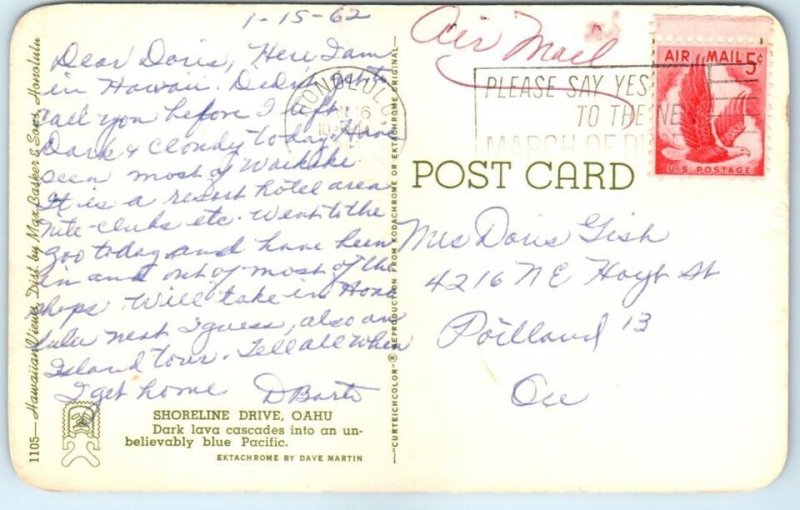 1-15-62
Dear Doris, Here I am
in Hawaii. Didn't get to
call you before I left.
Dark & cloudy today. Have
seen most of Waikiki
It is a resort hotel area
nite-clubs etc. Went to the
zoo today and have been
in and out of most of the
shops. Will take in Hono
lulu next I guess, also an
Island tour. Tell all when
I get home
SHORELINE DRIVE, OAHU
Dark lava cascades into an un-
believably blue Pacific.
EKTACHROME BY DAVE MARTIN
1105—Hawaiian Views, Dist. by Max Basker & Sons, Honolulu
"CURTEICHCOLOR"® REPRODUCTION FROM KODACHROME OR EKTACHROME ORIGINAL
Air Mail
HONOLULU
16
PLEASE SAY YES
TO THE NEW
MARCH OF
AIR MAIL 5¢
U.S. POSTAGE
POST CARD
Mrs Doris Gish
4216 NE Hoyt St
Portland 13
Ore